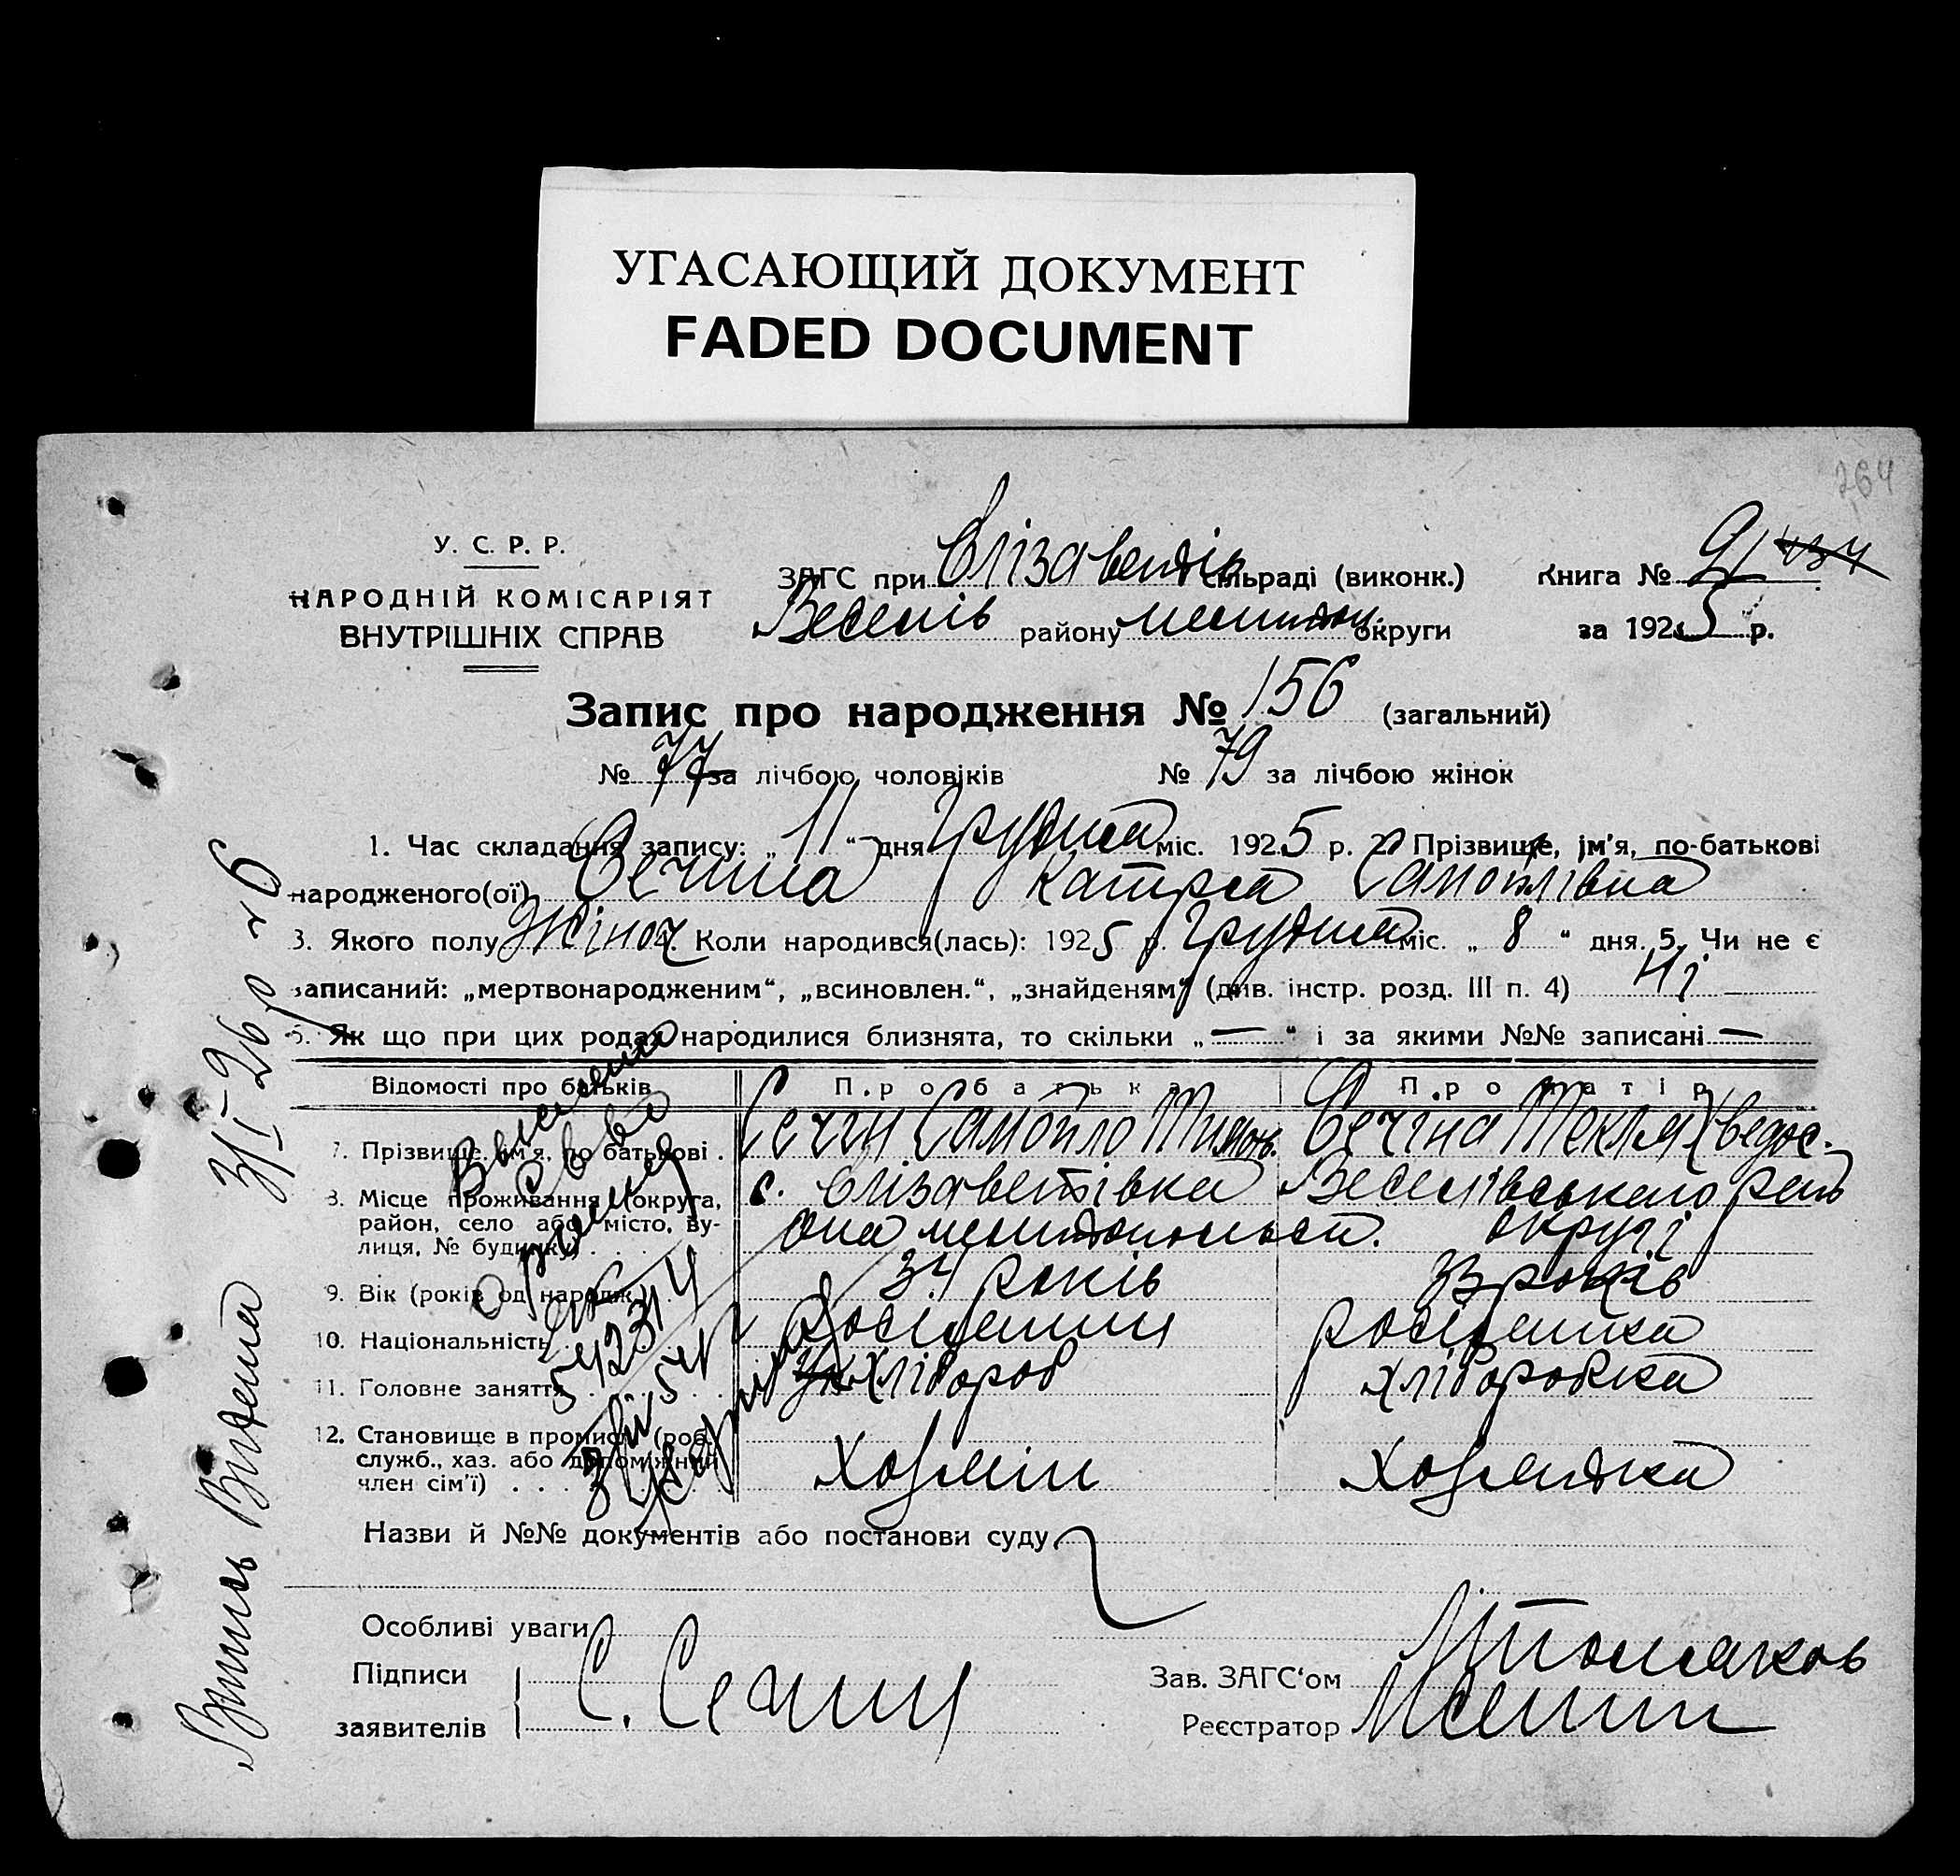 УГАСАЮЩИЙ ДОКУМЕНТ
FADED DOCUMENT
264
У. С. Р. Р.
НАРОДНІЙ КОМІСАРІЯТ
ВНУТРІШНІХ СПРАВ
ЗАГС при Єлізаветів сільраді (виконк.)
Веселів району округи
Книга № 91
за 1925 р.
Запис про народження № 156 (загальний)
№ 77 за лічбою чоловіків № 79 за лічбою жінок
1. Час складання запису: „ 11 “ дня Грудня міс. 1925 р. 2. Прізвище, ім'я, по-батькові
народженого(ої) Сечина Катря Самойлівна
3. Якого полу Жіноч 4. Коли народився(лась): 1925 р. Грудня міс. „ 8 “ дня. 5. Чи не є
записаний: „мертвонародженим“, „всиновлен.“, „знайденям“ (див. інстр. розд. III п. 4) Ні
6. Як що при цих родах народилися близнята, то скільки „ — “ і за якими №№ записані —
Відомості про батьків Про батька Про матір
7. Прізвище, ім'я, по батькові . Сечін Самойло Тимох. Сечіна Текля Хведос.
8. Місце проживання (округа, район, село або місто, вулиця, № будинку) . с. Єлізаветівка Веселівського рай
округі
9. Вік (років од народж.) . 34 років 33 років
10. Національність росіянин росіянка
11. Головне заняття хлібороб хліборобка
12. Становище в промислі (роб., служб., хаз. або допоміжний член сім'ї) . . . Хозяїн Хозяйка
Назви й №№ документів або постанови суду
Особливі уваги
Підписи
заявителів
С. Сечин
Зав. ЗАГС‘ом
Реєстратор